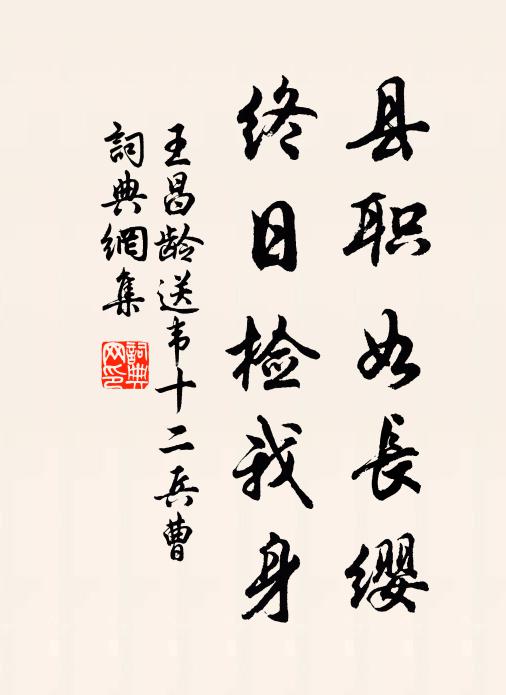 县职如长缨
终日检我身
王昌龄送韦十二兵曹
詞典網集
詞典网印